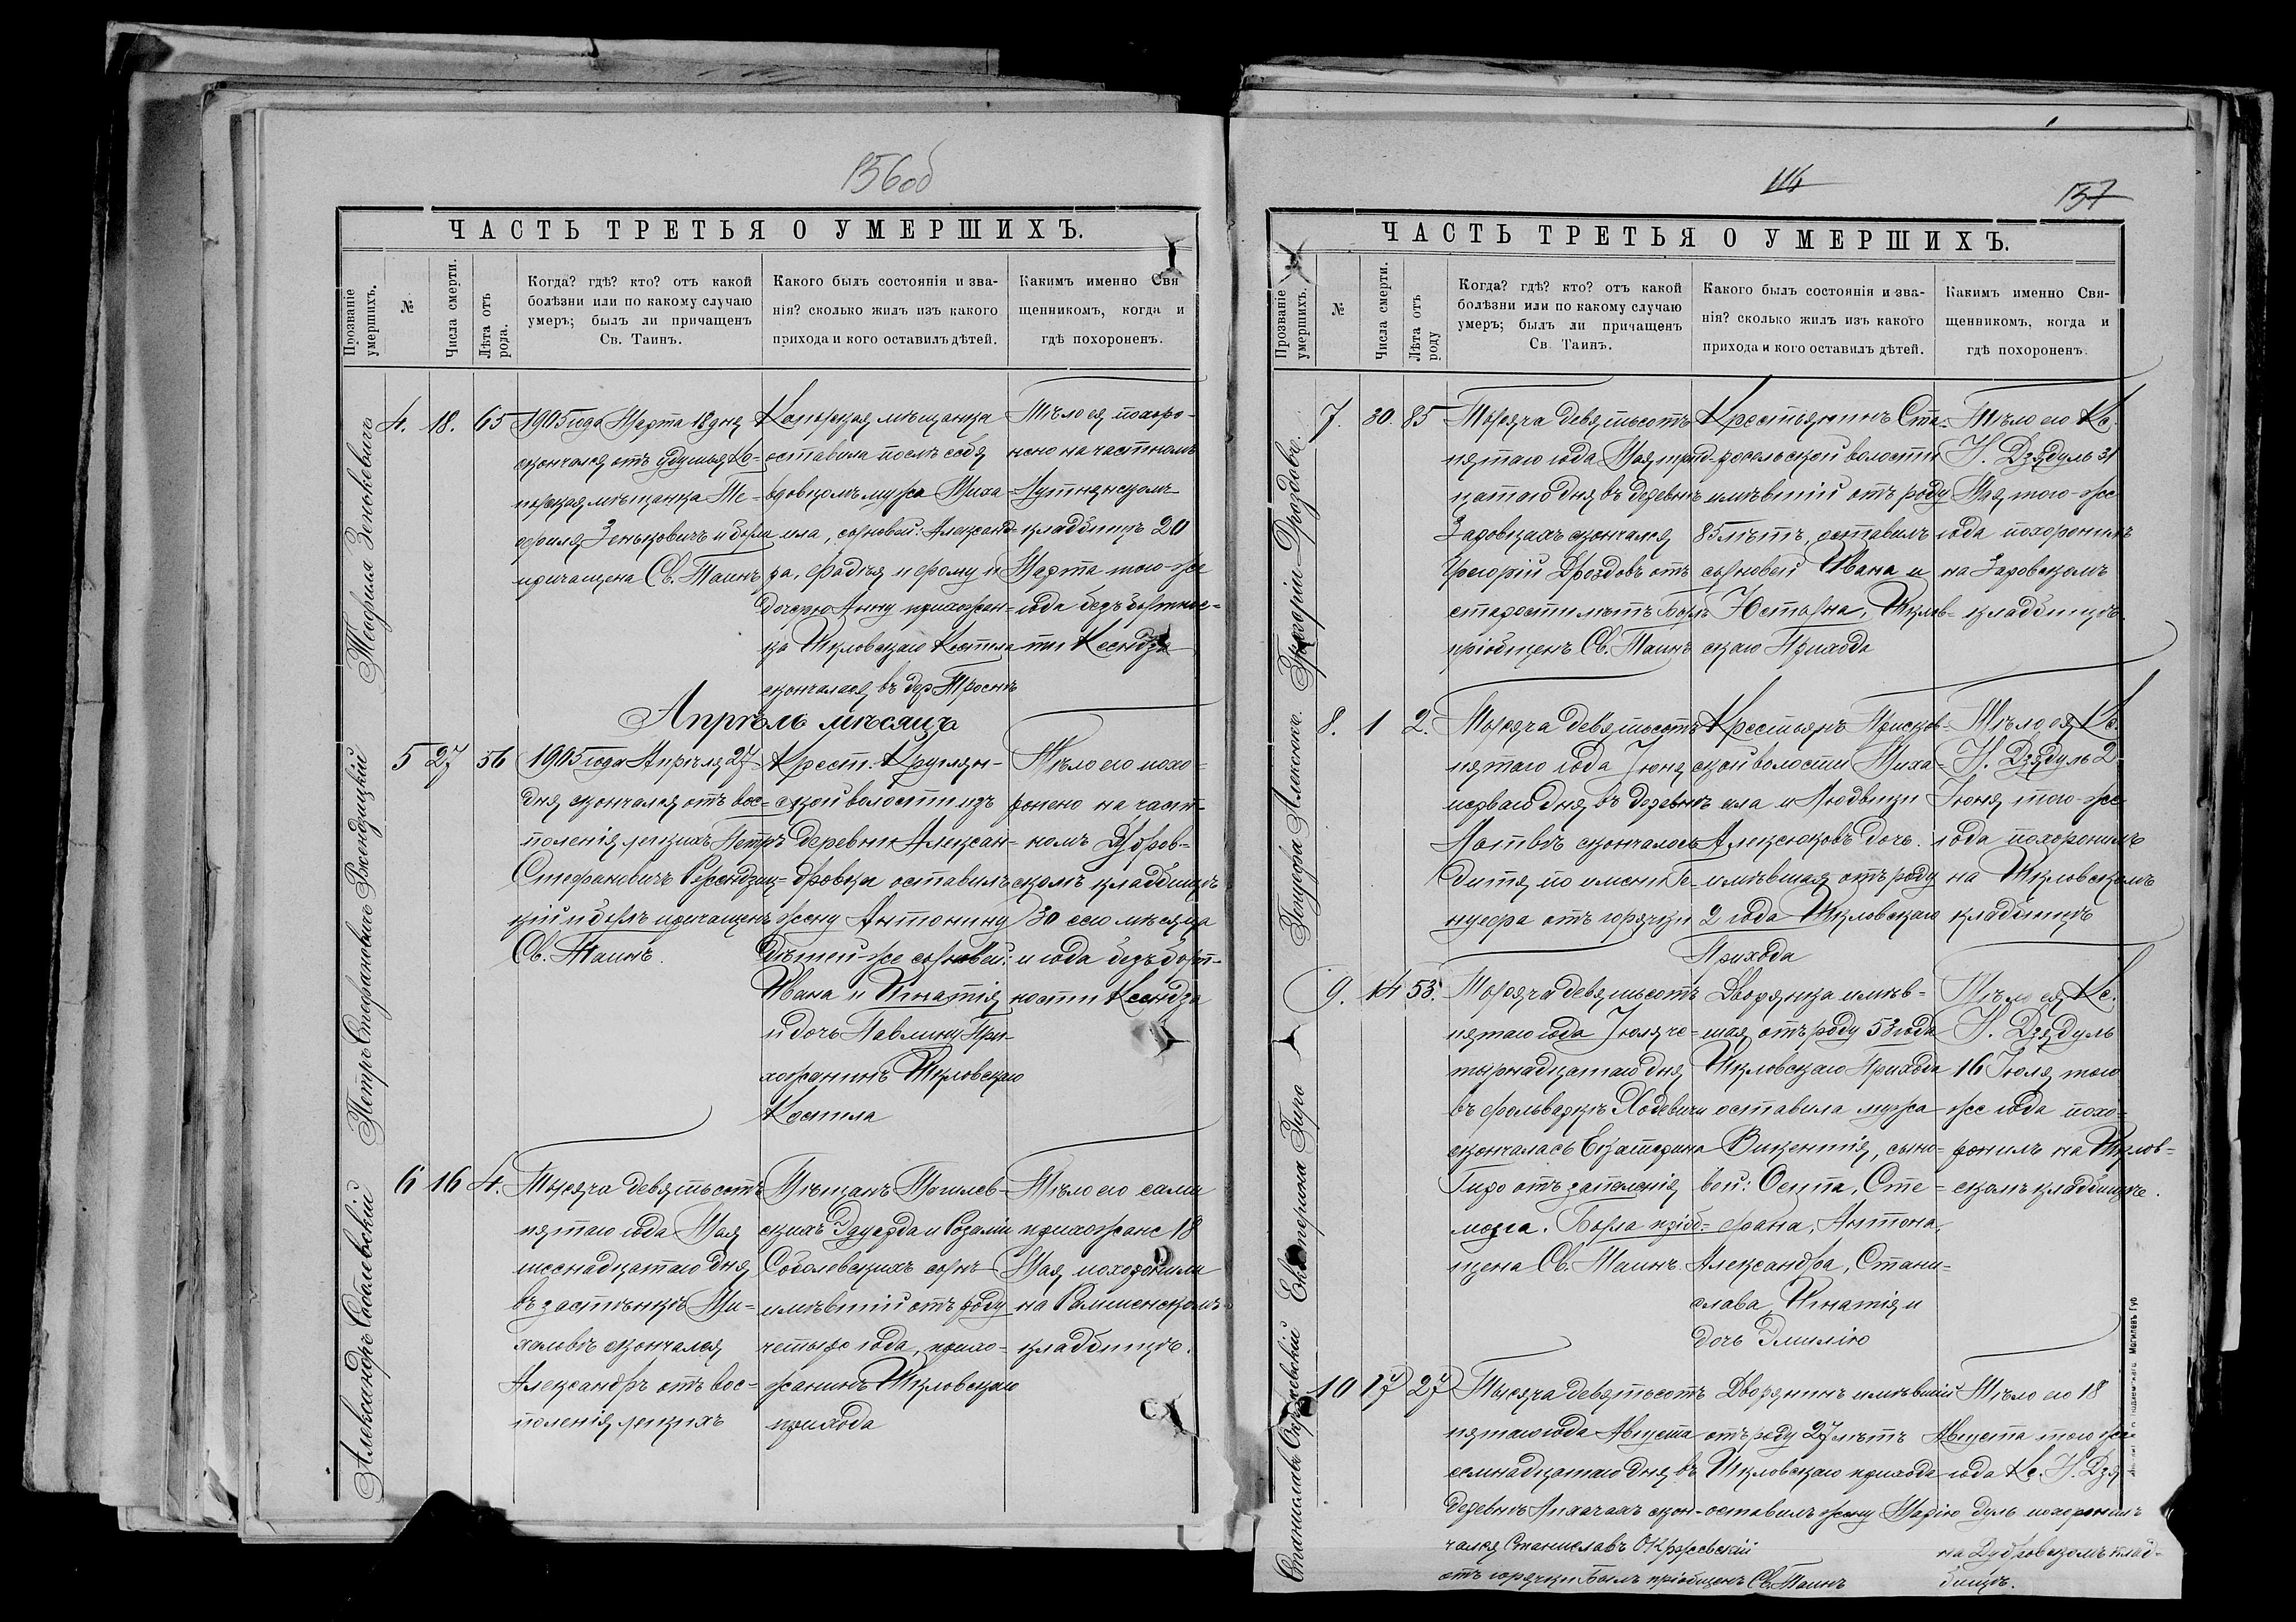 156об
ЧАСТЬ ТРЕТЬЯ О УМЕРШИХЪ.
Прозваніе умершихъ.
№
Числа смерти.
Лѣта отъ рода.
Когда? гдѣ? кто? отъ какой
болѣзни или по какому случаю
умеръ; былъ ли причащенъ
Св. Таинъ.
Какого былъ состоянія и зва-
нія? сколько жилъ изъ какого
прихода и кого оставилъ дѣтей.
Какимъ именно Свя
щенникомъ, когда и
гдѣ похороненъ.
Теофиля Зенькевичъ
4.
18.
65
1905 года Марта 18 дня
скончался отъ удушья Ко-
пыская мѣщанка Те-
офиля Зеньковичъ и была
причащена Св. Таинъ
Копыская мѣщанка
оставила послѣ себя
вдовцомъ мужа Миха-
ила, сыновей: Александ-
ра, Фадѣя и Фому и
дочерю Анну прихожан-
ка Шкловскаго Костела
скончалася въ дер. Тросн
Тѣло ея похоро-
нено на частномъ
кладбищѣ 20
Марта того-же
года безъ бытнос-
ти Ксендза
Апрѣль мѣсяцъ
Петръ Стефановичъ Ржендзицкій
5
27
56
1905 года Апрѣля 27
дня скончался отъ вос-
поленія легкихъ Петръ
Стефановичъ Рженდзиц-
кій и былъ причащенъ
Св. Таинъ.
Крест. Круглян-
ской волости изъ
деревни Алексан-
дровки оставилъ
жену Антонину
дѣтей-же сыновей:
Ивана и Игнатія
и дочь Павлину При-
хожанинъ Шкловскаго
Костела
Тѣло его похо-
ронено на част-
номъ Дубров-
скомъ кладбищѣ
30 сего мѣсяца
и года безъ быт-
ности Ксендза
Александръ Соболевскій
6
16
4.
Тысяча девятьсотъ
пятаго года Мая
шеснадцатаго дня
въ застѣнкѣ Ми-
халовѣ скончался
Александръ отъ вос-
поленія легкихъ
Мѣщанъ Могилев-
скихъ Эдуарда и Розаліи
Соболевскихъ сынъ
имѣвшій отъ роду
четыре года, прихо-
жанинъ Шкловскаго
прихода
Тѣло его сами
прихожане 18
Мая похоронили
на
кладбищѣ.
116
157
ЧАСТЬ ТРЕТЬЯ О УМЕРШИХЪ.
Прозваніе умершихъ.
№
Числа смерти.
Лѣта отъ роду
Когда? гдѣ? кто? отъ какой
болѣзни или по какому случаю
умеръ; былъ ли причащенъ
Св. Таинъ.
Какого былъ состоянія и зва-
нія? сколько жилъ изъ какого
прихода и кого оставилъ дѣтей.
Какимъ именно Свя-
щенникомъ, когда и
гдѣ похороненъ.
Григорій Дроздовъ.
7.
30.
85
Тысяча девятьсотъ
пятаго года Мая трид-
цатаго дня въ деревнѣ
Заровцахъ скончался
Григорій Дроздовъ отъ
старости лѣтъ. Былъ
пріобщенъ Св. Таинъ
Крестьянинъ Ста-
росельской волости
имѣвшій отъ роду
85 лѣтъ, оставилъ
сыновей Ивана и
Юстына, Шклов-
скаго Прихода
Тѣло его Кс.
Н. Дзядуль 31
Мая того-же
года похоронилъ
на Заровскомъ
кладбищѣ.
Генуефа Алексюкъ.
8.
1
2.
Тысяча девятьсотъ
пятаго года Іюня
перваго дня въ деревнѣ
скончалось
дитя по имени Ге-
нуефа отъ горячки
Крестьянъ
ской волости Миха-
ила и Людвиги
Алексюковъ дочь.
имѣвшая отъ роду
2 года Шкловскаго
Прихода
Тѣло ея Кс.
Н. Дзядуль 2
Іюня того-же
года похоронилъ
на Шкловскомъ
кладбищѣ
Екатерина Гиро
9.
14
53.
Тысяча девятьсотъ
пятаго года Іюля че-
тырнадцатаго дня
въ фольваркѣ Ходевичи
скончалась Екатерина
Гиро отъ запаленія
мозга. Была пріоб-
щена Св. Таинъ.
Дворянка имѣв-
шая отъ роду 53 года
Шкловскаго Прихода
оставила мужа
Викентія, сыно-
вей: Осипа, Сте-
фана, Антона,
Александра, Стани-
слава, Игнатія и
дочь Эмилію
Тѣло ея Кс.
Н. Дзядуль
16 Іюля того
же года похо-
ронилъ на Шклов-
скомъ кладбищѣ.
Станиславъ
10
17
27
Тысяча девятьсотъ
пятаго года Августа
семнадцатаго дня въ
деревнѣ Лихачахъ скон-
чался Станиславъ
отъ горячки Былъ пріобщенъ Св. Таинъ
Дворянинъ имѣвшій
отъ роду 27 лѣтъ
Шкловскаго прихода
оставилъ жену Марію
Тѣло его 18
Августа того же
года Кс. Н. Дзя-
дуль похоронилъ
на Дубровскомъ клад-
бищѣ.